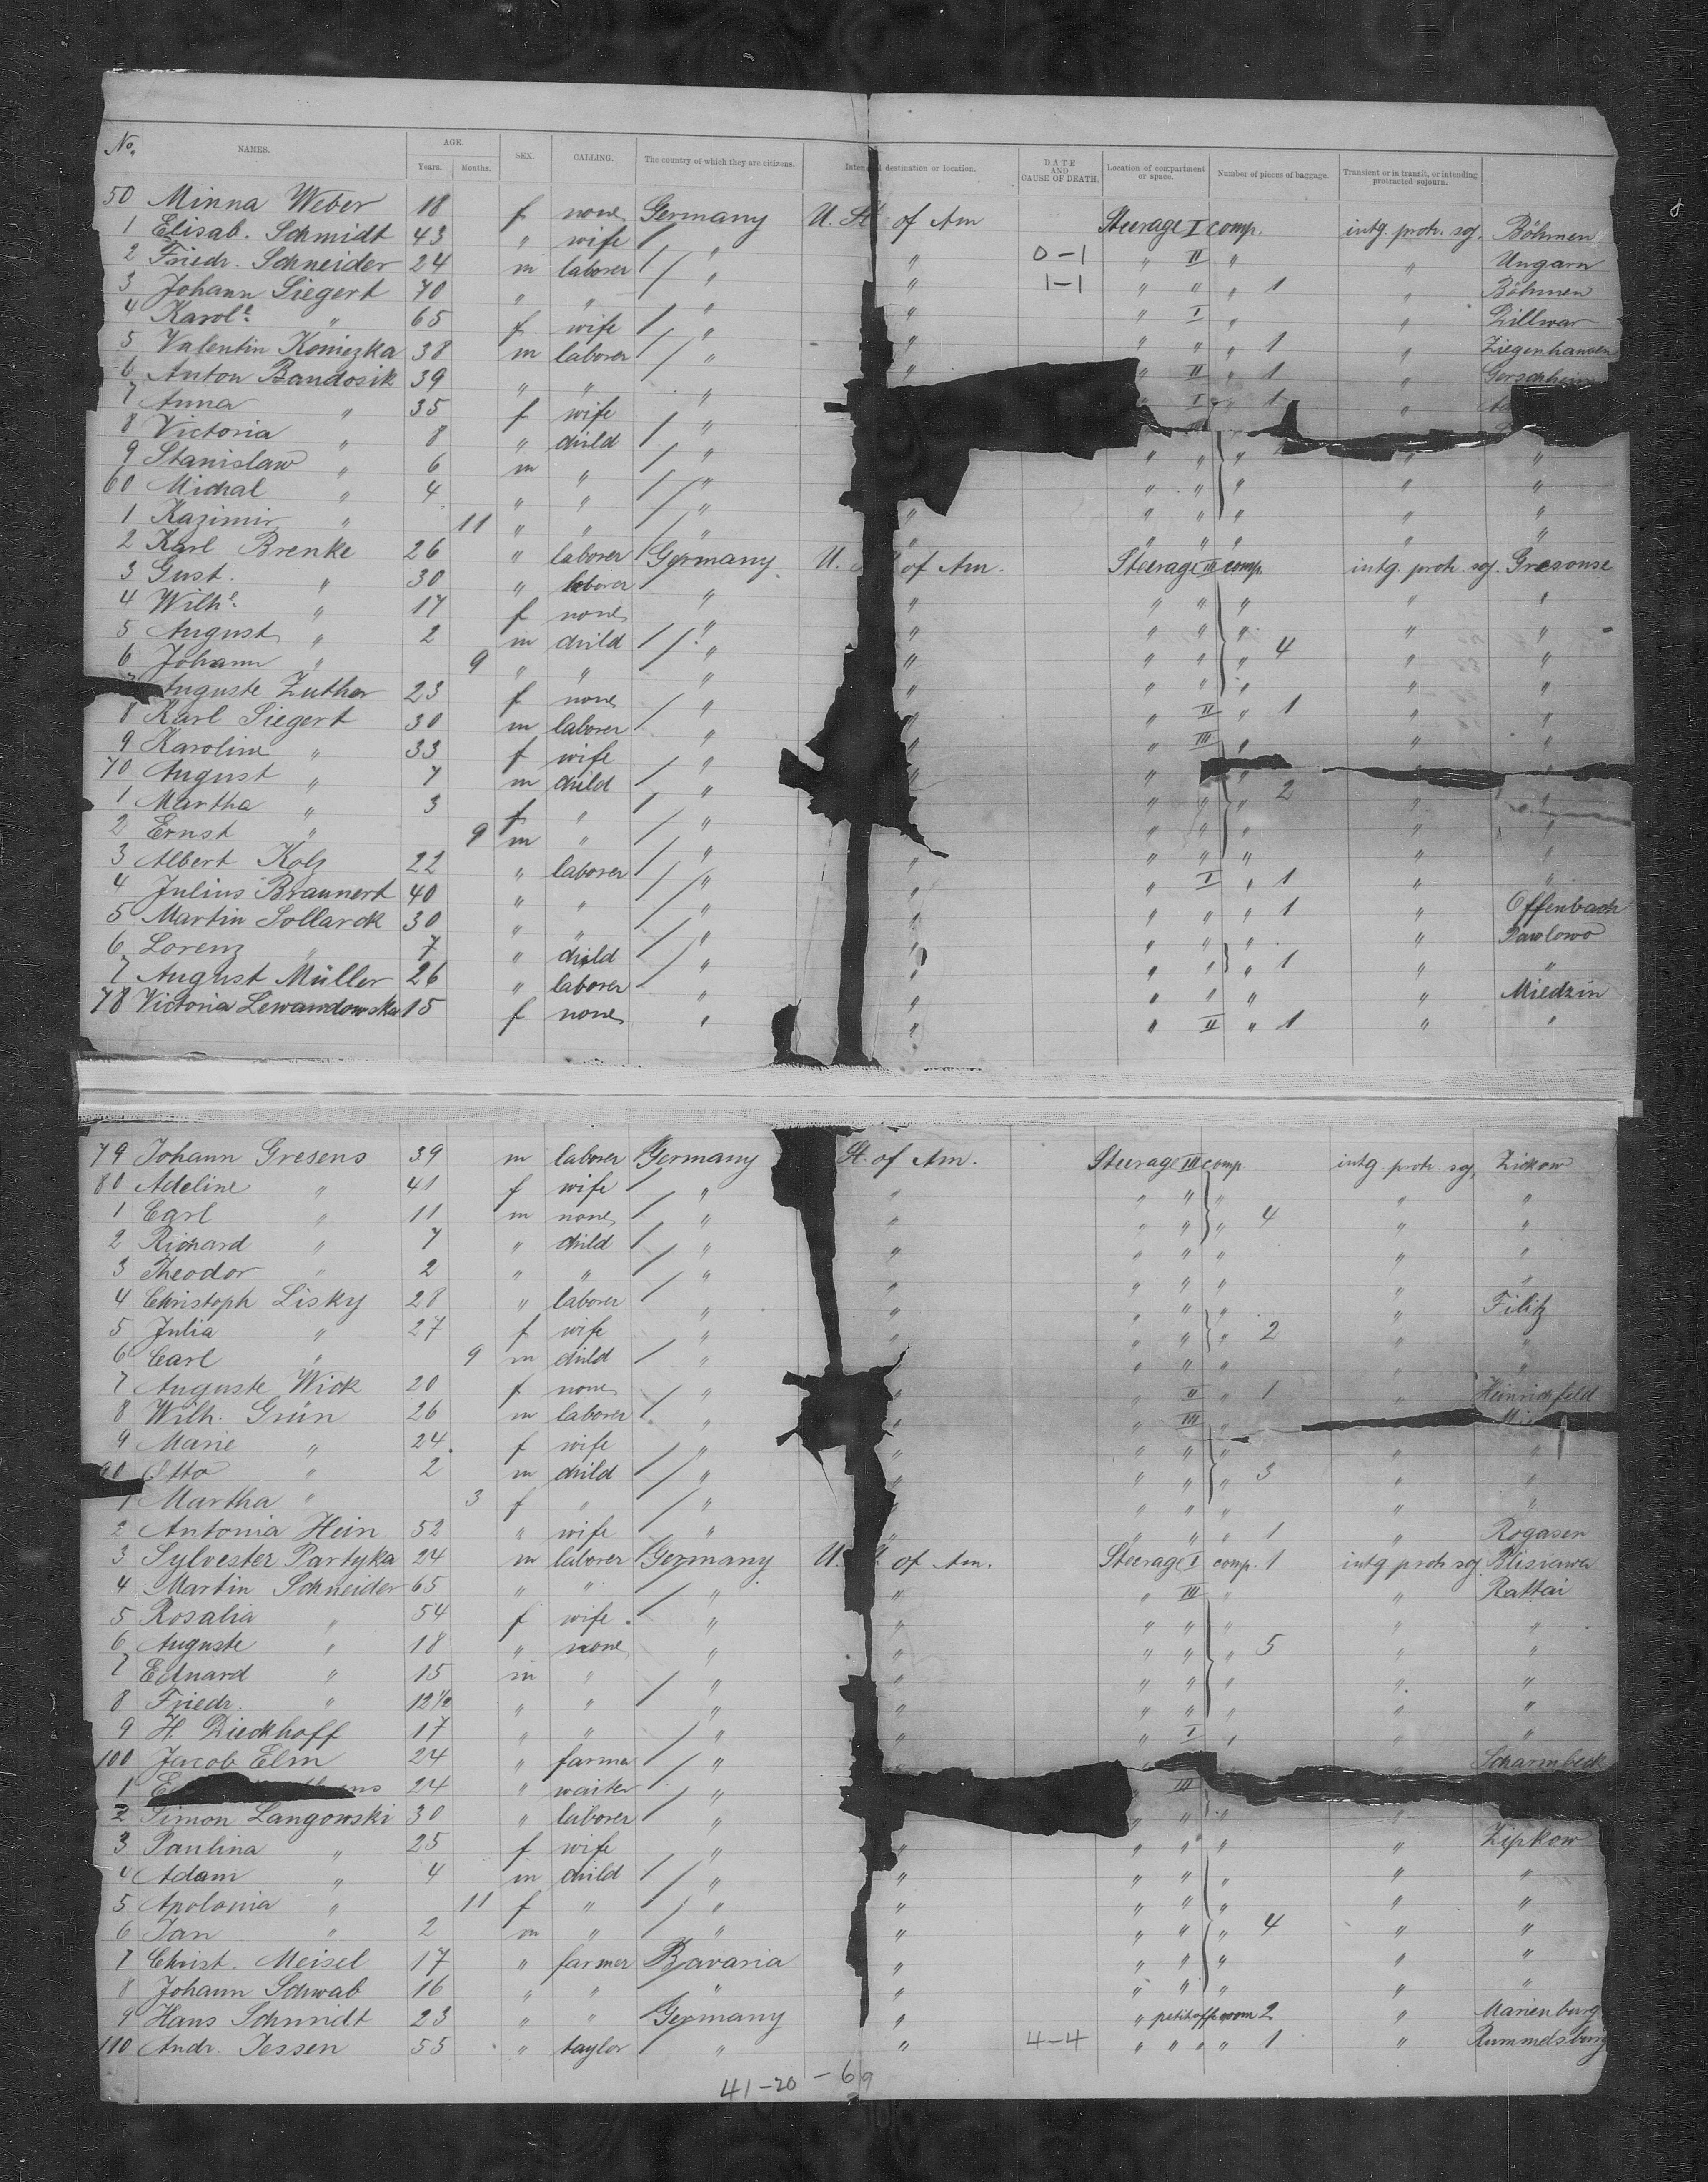 No. NAMES. AGE. Years. Months. SEX. CALLING. The country of which they are citizens. destination or location. DATE AND CAUSE OF DEATH. Location of compartment or space. Number of pieces of baggage. Transient or in transit, or intending protracted sojourn.
50 Minna Weber 18 f none Germany U. St. of Am Steerage I comp. intg. protr. soj. Böhmen
1 Elisab. Schmidt 43 " wife " " 0-1 " II " " Ungarn
2 Friedr. Schneider 24 m laborer " " 1-1 " " " 1 " Böhmen
3 Johann Siegert 70 " " " " " I " " Zillwar
4 Karole " 65 f wife " " " " " 1 " Ziegenhansen
5 Valentin Koniezka 38 m laborer " " " II " 1 " Gerschheim
6 Anton Bandosik 39 " " " I " 1 "
7 Anna " 35 f wife "
8 Victoria " 8 " child " " " " " "
9 Stanislaw " 6 m " " " " " " "
60 Michal " 4 " " " " " " " " "
1 Kazimir " 11 " " " " " " " " "
2 Karl Brenke 26 " laborer Germany U. of Am. Steerage III comp. intg. protr. soj. Gresonse
3 Gust. " 30 " laborer " " " " " " "
4 Wilhe. " 17 f none " " " " " " "
5 August " 2 m child " " " " " 4 " "
6 Johann " 9 " " " " " " " " "
Auguste Zuther 23 f none " " " II " 1 " "
8 Karl Siegert 30 m laborer " " " III " " "
9 Karoline " 33 f wife " " " " "
70 August " 7 m child " " " " 2 " "
1 Martha " 3 f " " " " " " " "
2 Ernst " 9 m " " " " " " " "
3 Albert Kolz 22 " laborer " " " I " 1 " "
4 Julius Braunert 40 " " " " " " " 1 " Offenbach
5 Martin Sollarck 30 " " " " " " " " Pawlowo
6 Lorenz " 7 " child " " " " " 1 " "
7 August Müller 26 " laborer " " " " " " Miedzin
78 Victoria Lewandowska 15 f none " " " II " 1 " "
79 Johann Gresens 39 m laborer Germany St. of Am. Steerage III comp. intg. protr. soj. Zickow
80 Adeline " 41 f wife " " " " " " "
1 Carl " 11 m none " " " " " 4 " "
2 Richard " 7 " child " " " " " " "
3 Theodor " 2 " " " " " " " " "
4 Christoph Lisky 28 " laborer " " " " " " Filitz
5 Julia " 27 f wife " " " " " 2 " "
6 Carl " 9 m child " " " " " "
7 Auguste Wick 20 f none " " " II " 1 " Heinrichfeld
8 Wilh. Grün 26 m laborer " " " III "
9 Marie " 24 f wife " " " " " " "
90 Otto " 2 m child " " " " " 3 " "
1 Martha " 3 f " " " " " " " "
2 Antonia Hein 52 " wife " " " " " 1 " Rogasen
3 Sylvester Partyka 24 m laborer Germany U. of Am. Steerage I comp. 1 intg protr soj Blisiawa
4 Martin Schneider 65 " " " " " III " " Rattai
5 Rosalia " 54 f wife " " " " " " "
6 Auguste " 18 " none " " " " " 5 " "
7 Eduard " 15 m " " " " " " " "
8 Friedr. " 12 1/2 " " " " " " " " "
9 H. Dieckhoff 17 " " " " " I " " "
100 Jacob Elm 24 " farmer " Scharmbeck
1 24 " waiter " III
2 Simon Langowski 30 " laborer " " " " "
3 Paulina " 25 f wife " " " " " " Zipkow
4 Adam " 4 m child " " " " " " "
5 Apolonia " 11 f " " " " " " " "
6 Jan " 2 m " " " " " " 4 " "
7 Christ. Meisel 17 " farmer Bavaria " " " " " "
8 Johann Schwab 16 " " " " " " " " "
9 Hans Schmidt 23 " " Germany " " 2 " Marienburg
110 Andr. Jessen 55 " taylor " " 4-4 " " " " 1 " Rummelsburg
41-20 - 69